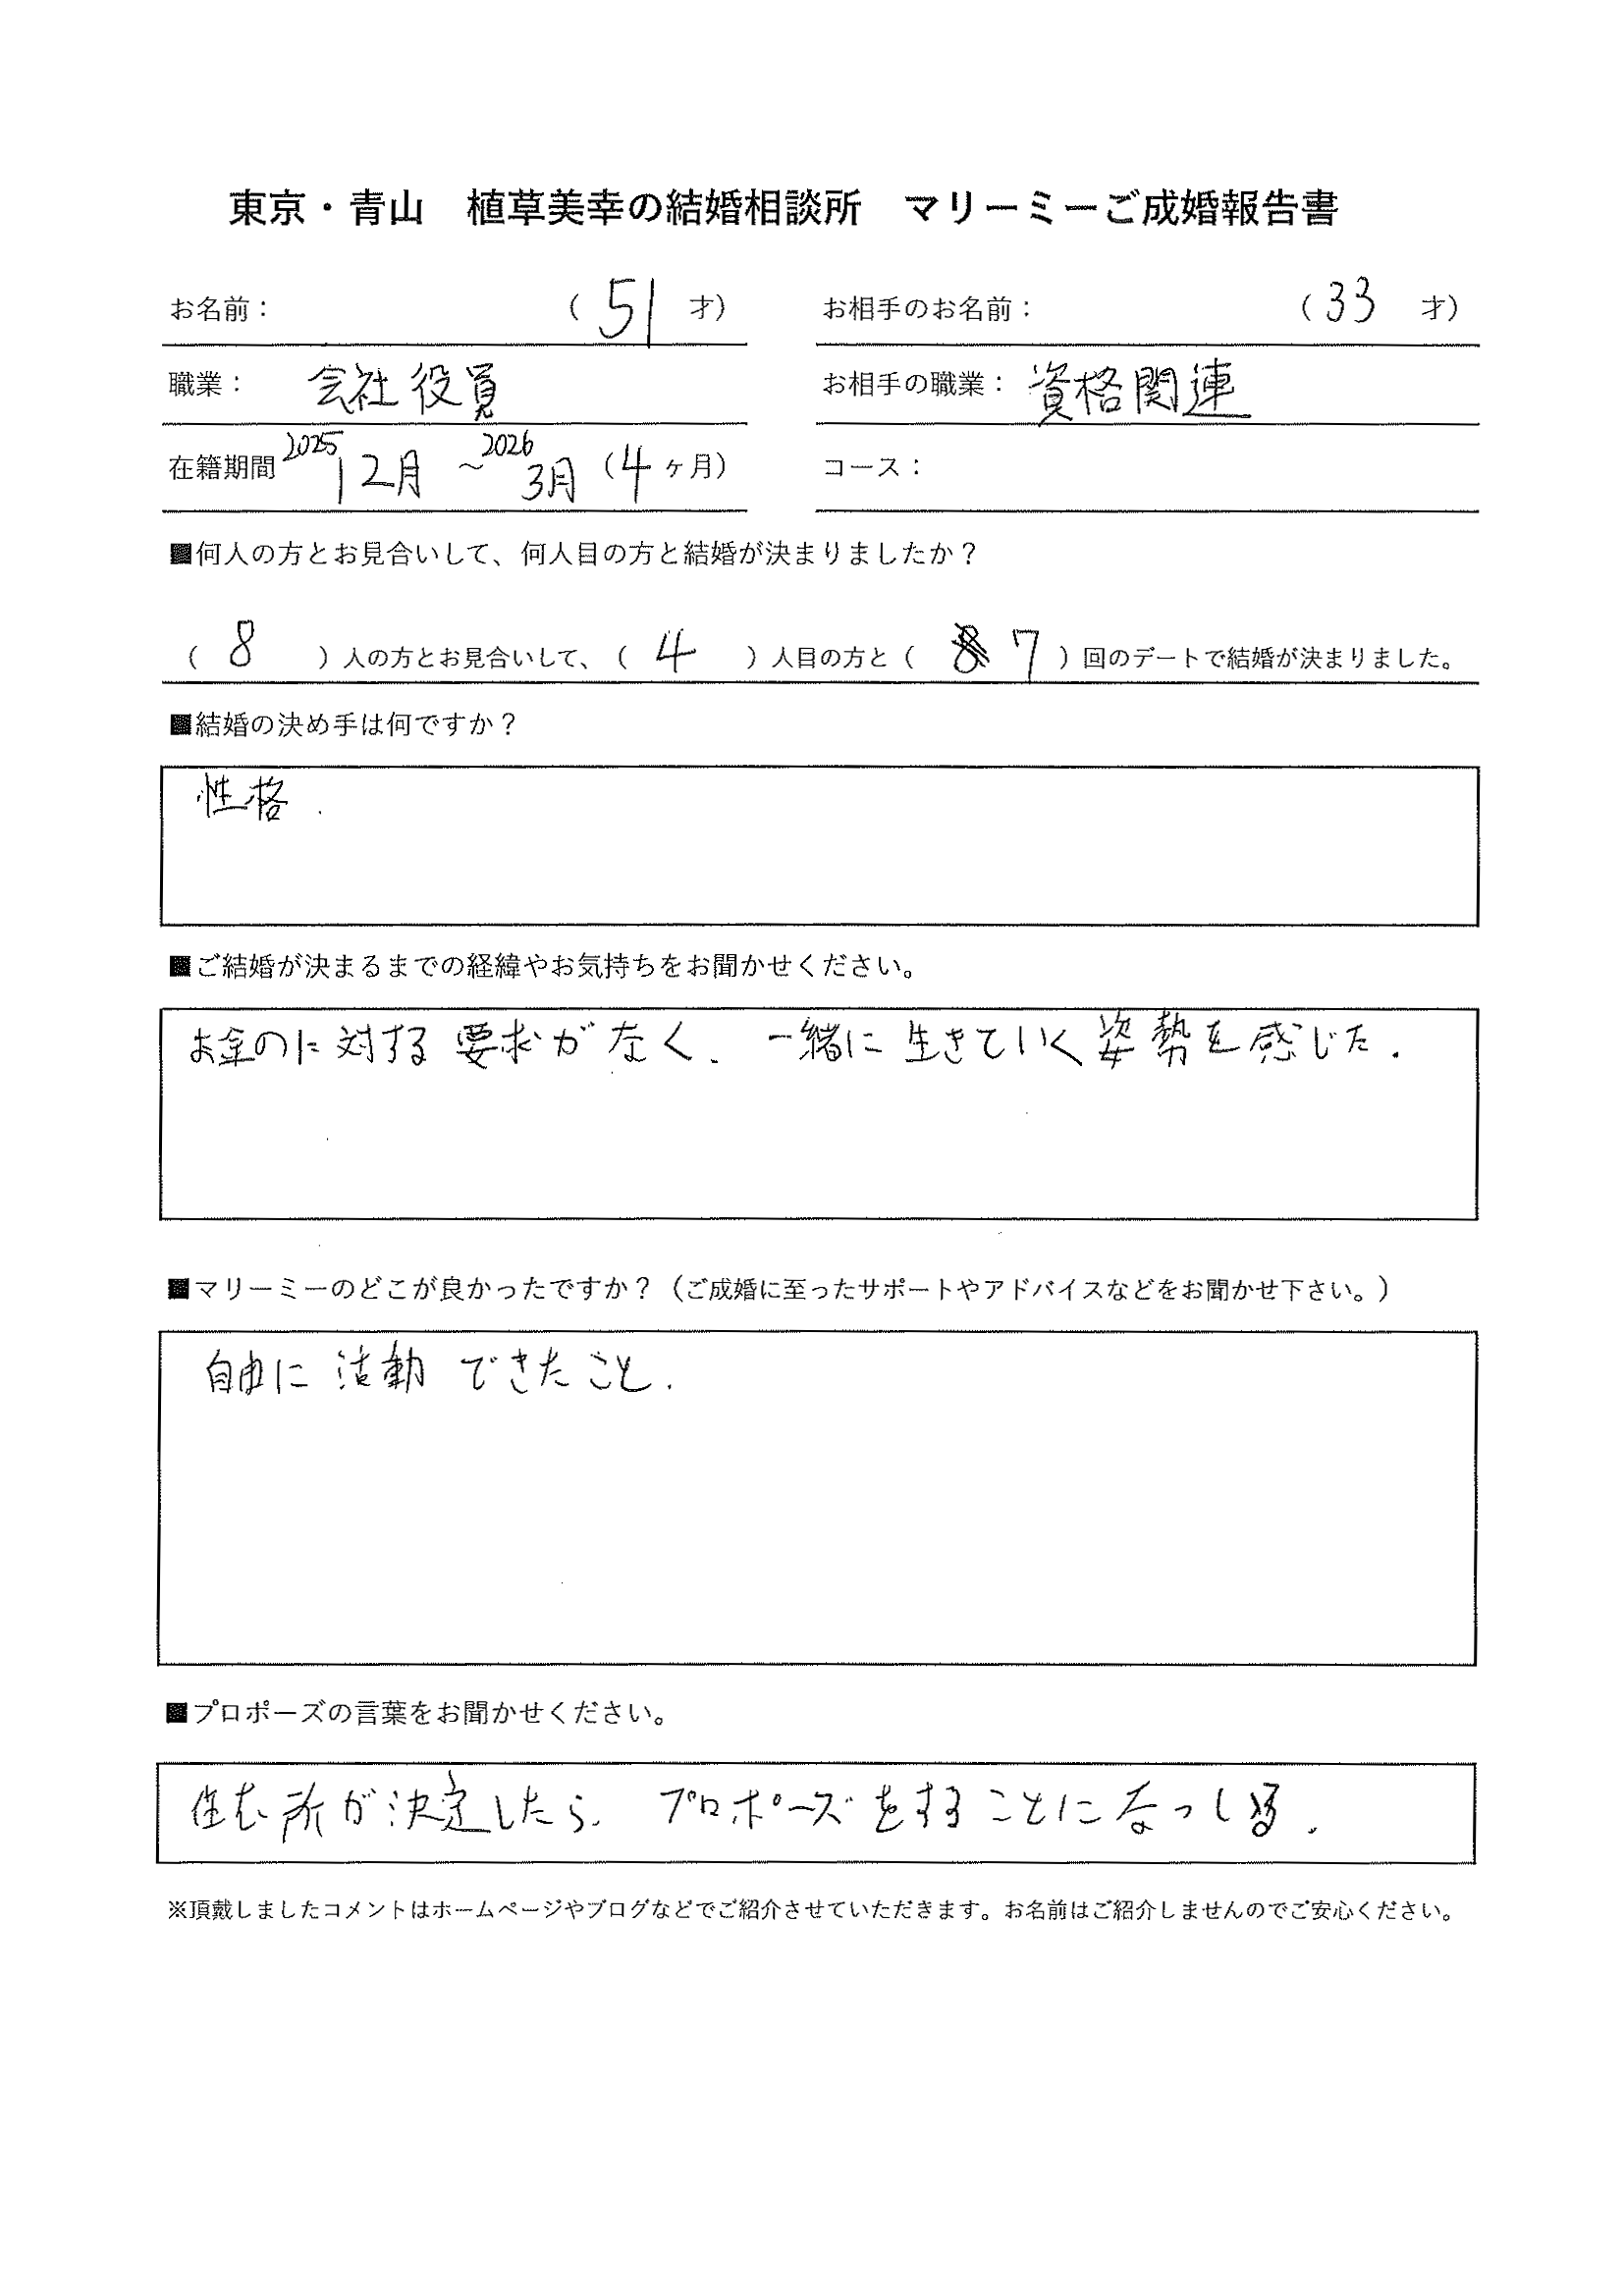 東京・青山　植草美幸の結婚相談所　マリーミーご成婚報告書
お名前：　（ 51 才）　お相手のお名前：　（ 33 才）
職業：　会社役員　お相手の職業：　資格関連
在籍期間　2025 12月 ～ 2026 3月（4ヶ月）　コース：
■何人の方とお見合いして、何人目の方と結婚が決まりましたか？
（ 8 ）人の方とお見合いして、（ 4 ）人目の方と（ 7 ）回のデートで結婚が決まりました。
■結婚の決め手は何ですか？
性格.
■ご結婚が決まるまでの経緯やお気持ちをお聞かせください。
お金のに対する要求がなく、一緒に生きていく姿勢を感じた.
■マリーミーのどこが良かったですか？（ご成婚に至ったサポートやアドバイスなどをお聞かせ下さい。）
自由に活動できたこと.
■プロポーズの言葉をお聞かせください。
住む所が決定したら、プロポーズをすることになっしる.
※頂戴しましたコメントはホームページやブログなどでご紹介させていただきます。お名前はご紹介しませんのでご安心ください。